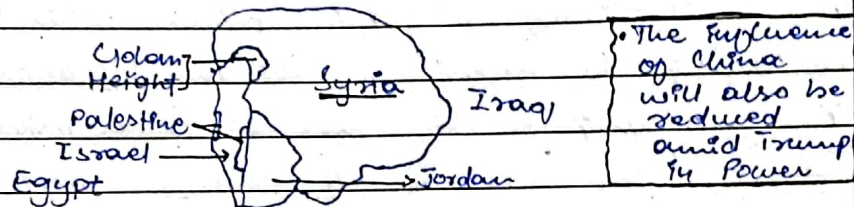 Golan
Height
Syria
Iraq
Palestine
Israel
Egypt
Jordan
• The influence
of China
will also be
reduced
amid Trump
in Power